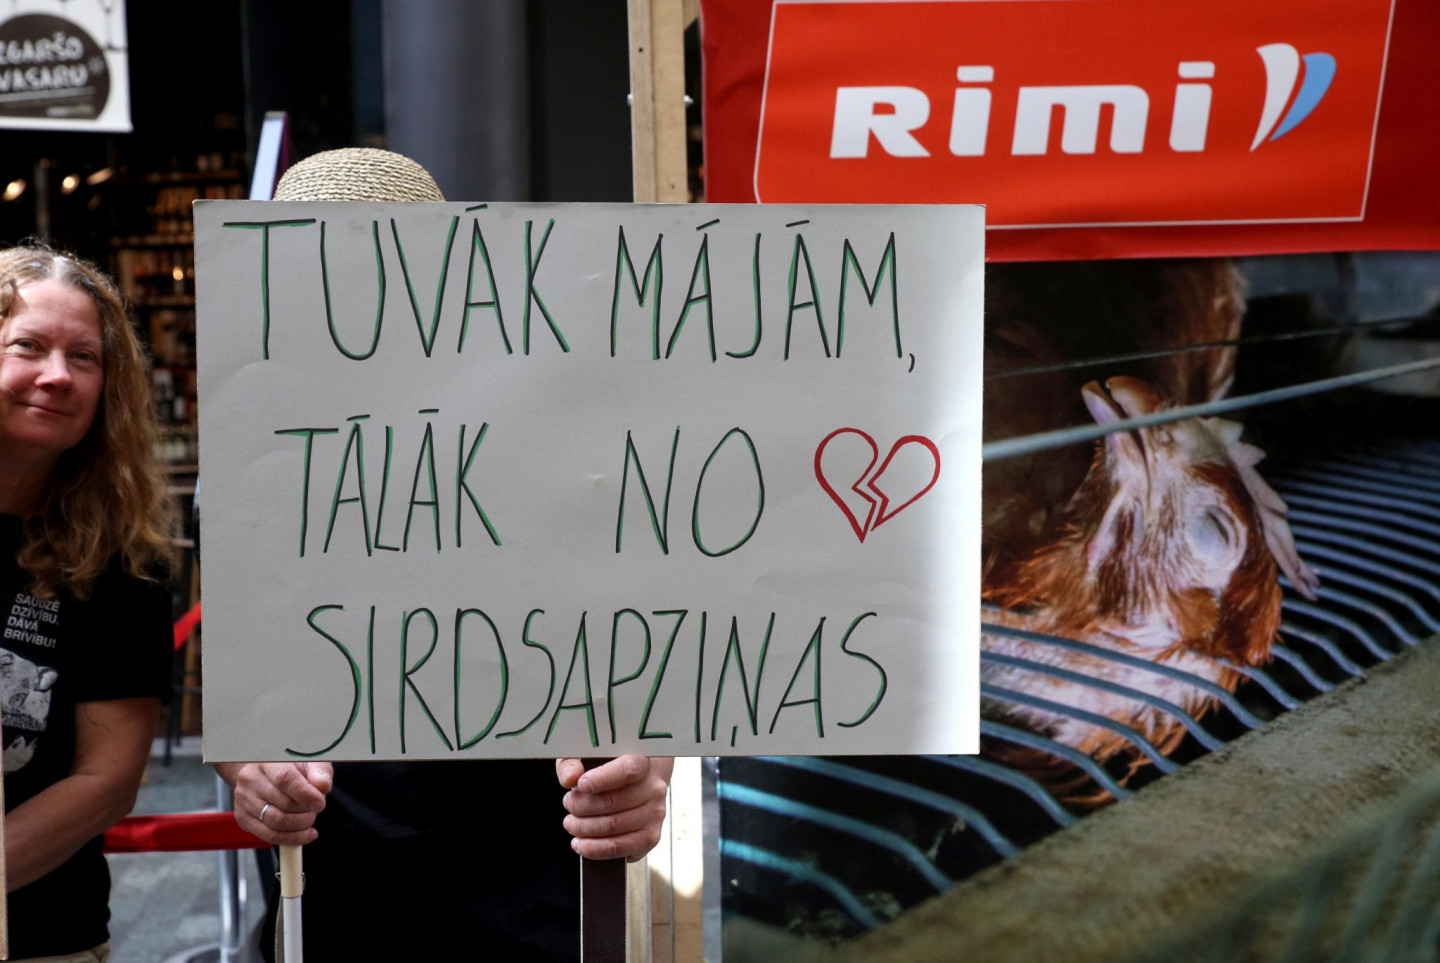 VASARU
Rimi
TUVĀK MĀJĀM,
TĀLĀK NO
SIRDSAPZIŅAS
SAUDZĒ
DZĪVĪBU,
DĀVĀ
BRĪVĪBU!